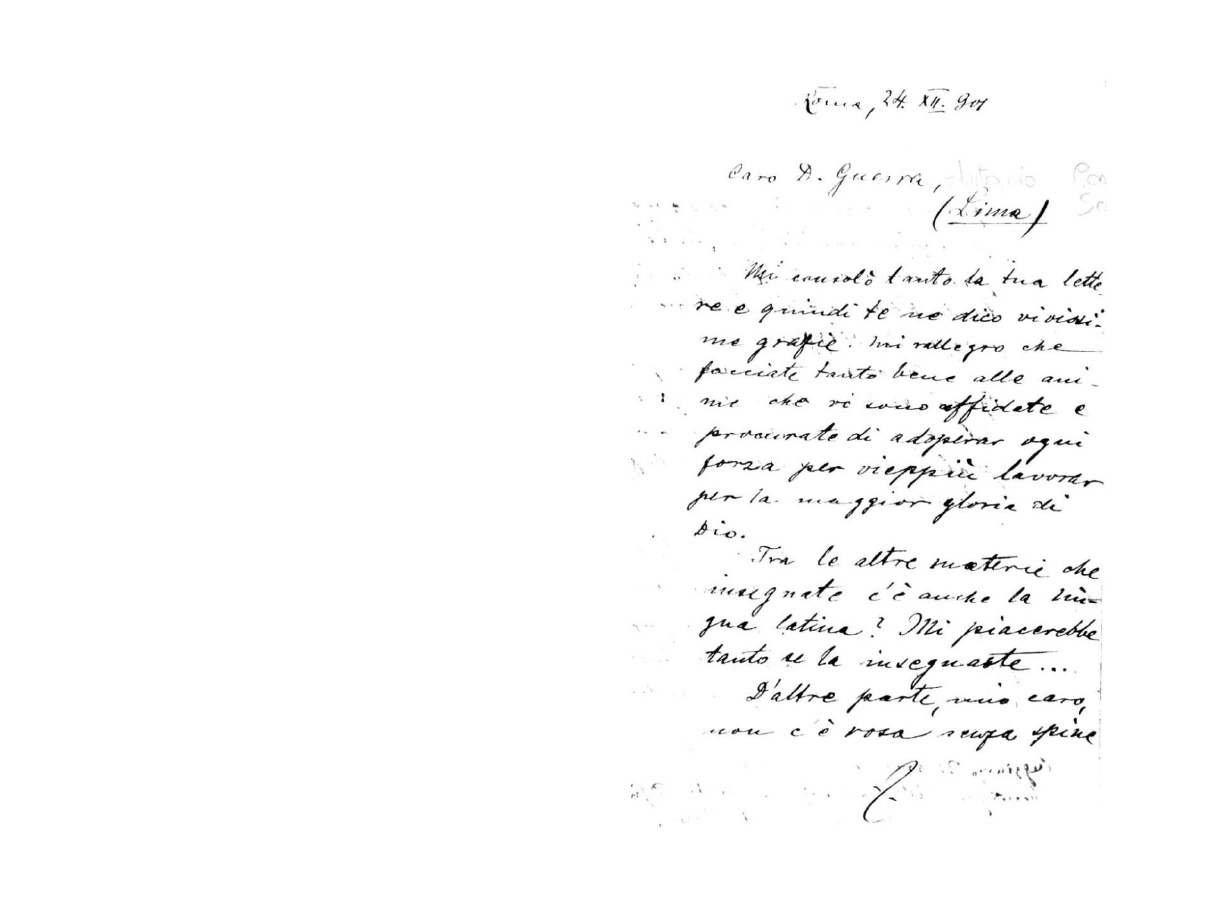 Roma, 24. XII. 901
Caro D. Guerra,
(Lima)
Mi consolò tanto la tua lette
ra e quindi te ne dico vivissi-
me grazie. Mi rallegro che
facciate tanto bene alle ani-
me che vi sono affidate e
procurate di adoperar ogni
forza per vieppiù lavorar
per la maggior gloria di
Dio.
Tra le altre materie che
insegnate c'è anche la lin=
gua latina? Mi piacerebbe
tanto se la insegnaste...
D'altre parte, mio caro,
non c'è rosa senza spine